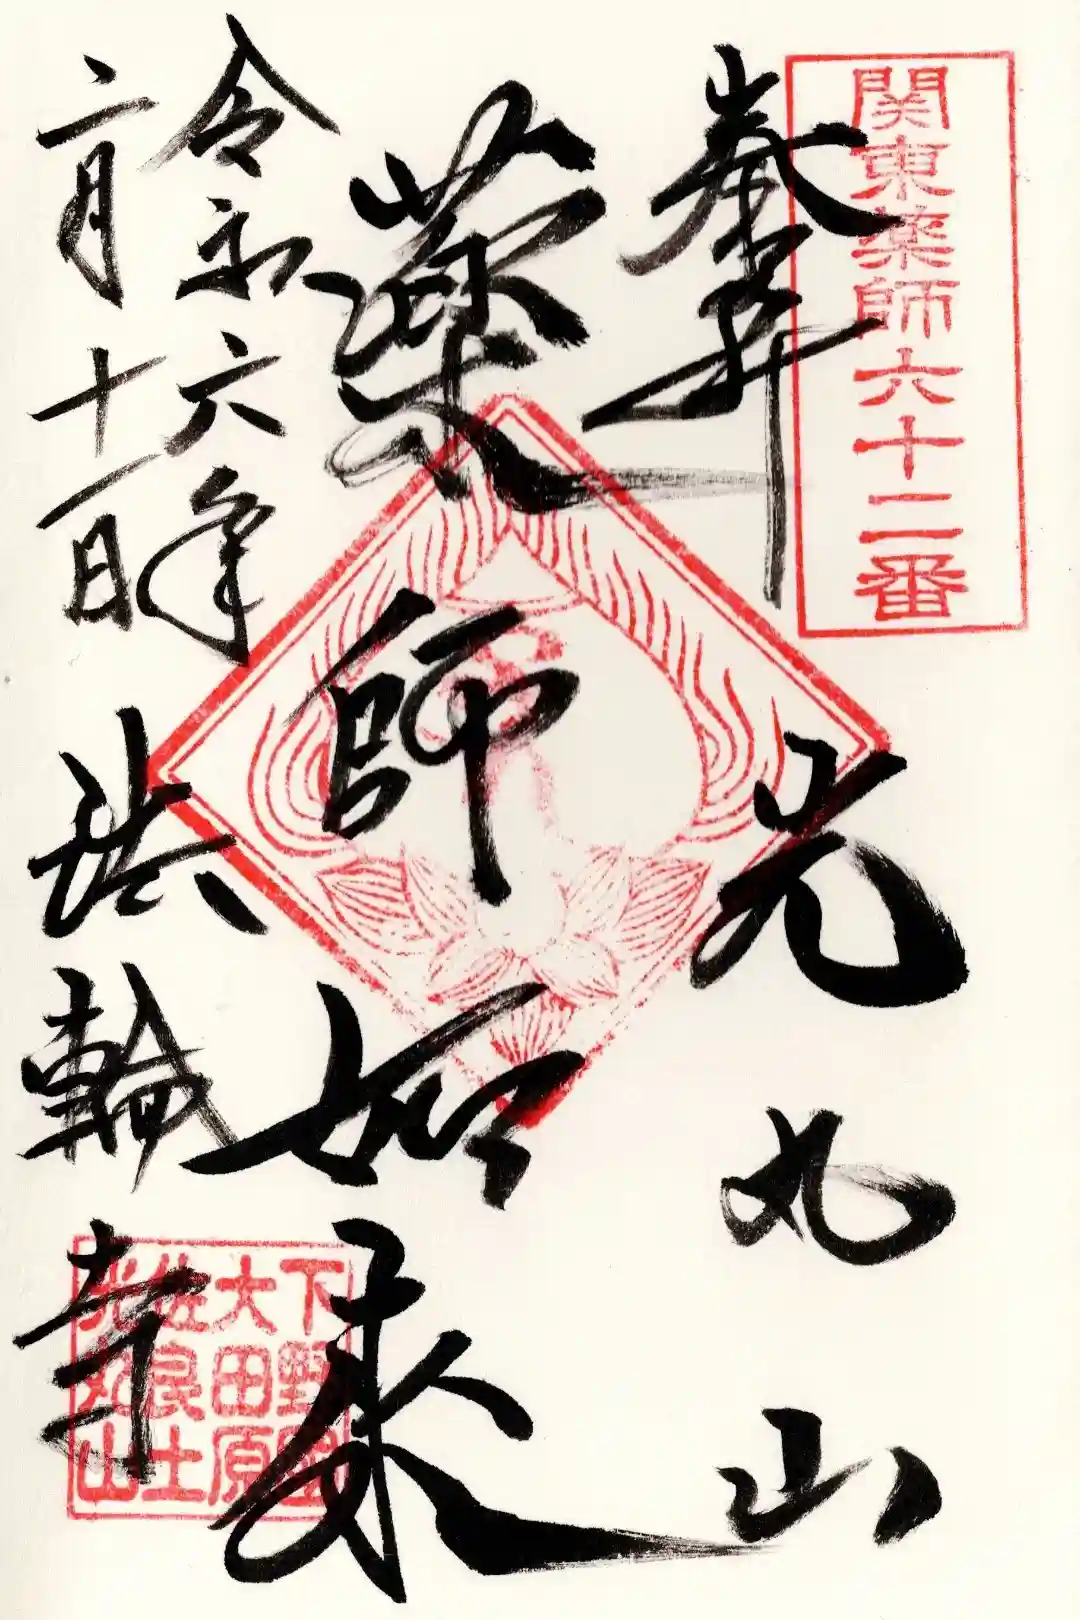 関東薬師六十二番
奉拝 光丸山
薬師如来
令和六年
二月十一日
法輪寺
下野國
大田原
佐良土
光丸山